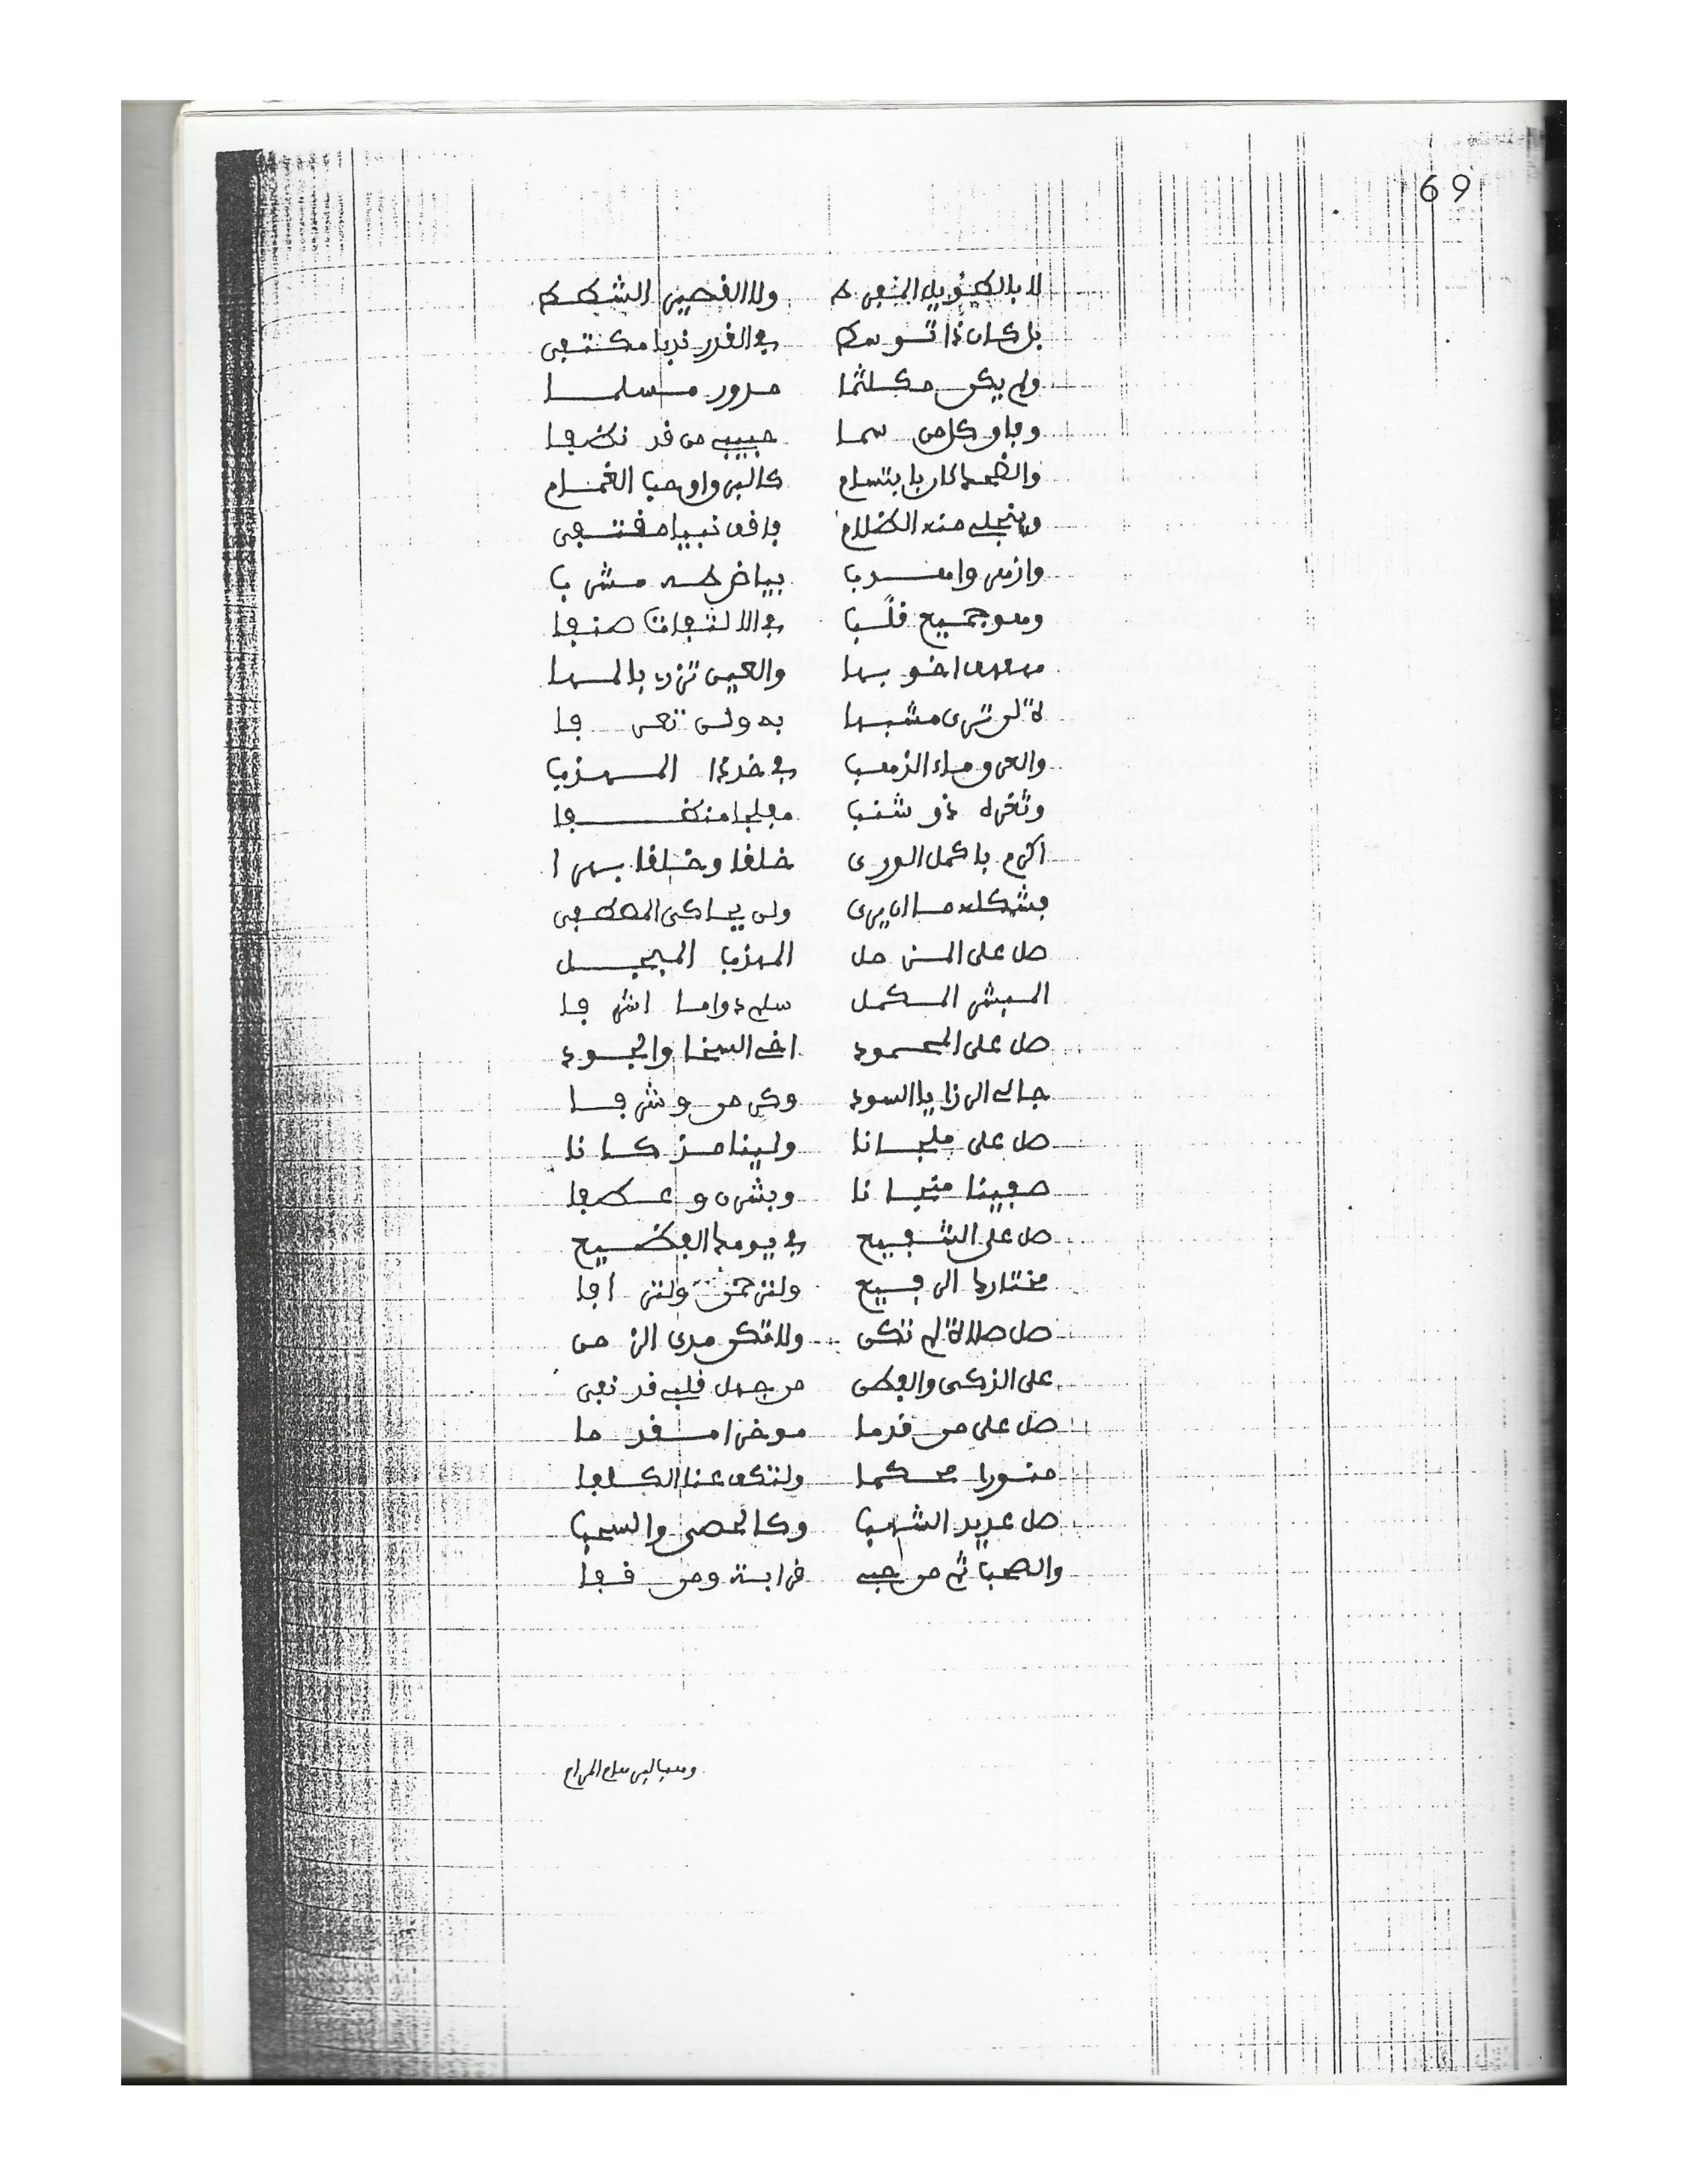 69
لا بالطويل المفرط ولا القصير الشطط
بل كان ذا توسط في القدر ندبا مكتفى
ولم يكن مكلثما مدور مسلما
وفاق كل من سما حبيب من قد نظفا
والضحك كان بابتسام كالبرق او حب الغمام
وينجلي منه الظلام فافق نبيا مقتفى
وازهر وا هدبا بياض طه مشربا
وهو جميع قلبا في الالتفات صنفا
اخو بها والعين تزري بالمها
لا لن ترى مشبها به ولن تعرفا
والعرق ماء الذهب في خد ذا المهذب
وثغره ذو شنب مفلجا منظفا
اكرم باكمل الورى خلقا وخلقا بهرا
فشكله ما ان يرى ولن يحاكى المصطفى
صل على المزمل المهذب المبجل
المبشر المكمل سلم دواما اشرفا
صل على المحمود اخي السخا والجود
جالي الرزايا السود وكرمن وشرفا
صل على ملجانا ولينا مذ كانا
صفينا منجانا وبشرن وعطفا
صل على الشفيع في يومه الفظيع
مختاره الرفيع ولترحمن ولترافا
صل صلاة لم تكن ولا تكن مدى الزمن
على الزكي والفطن من جهل قلبي قد نفى
صل على من قدما موخرا مقدما
منورا محكما ولتكف عنا الكلفا
صل عديد الشهب وكالحصى والسحب
والصحب ثم من حبي قرابة ومن قفا
وهب لبر سلم المرام